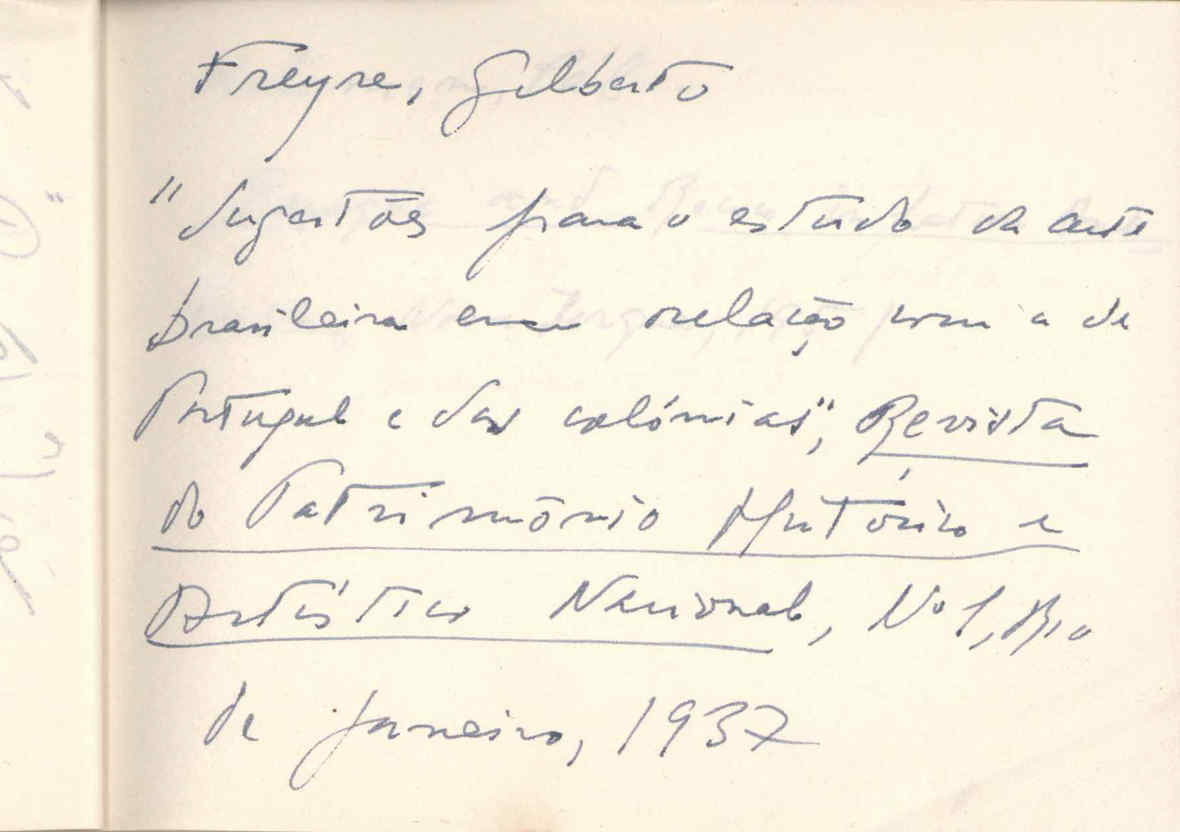 Freyre, Gilberto
"Sugestões para o estudo da arte
brasileira em relação com a de
Portugal e das colónias", Revista
do Património Histórico e
Artístico Nacional, Nº 1, Rio
de Janeiro, 1937